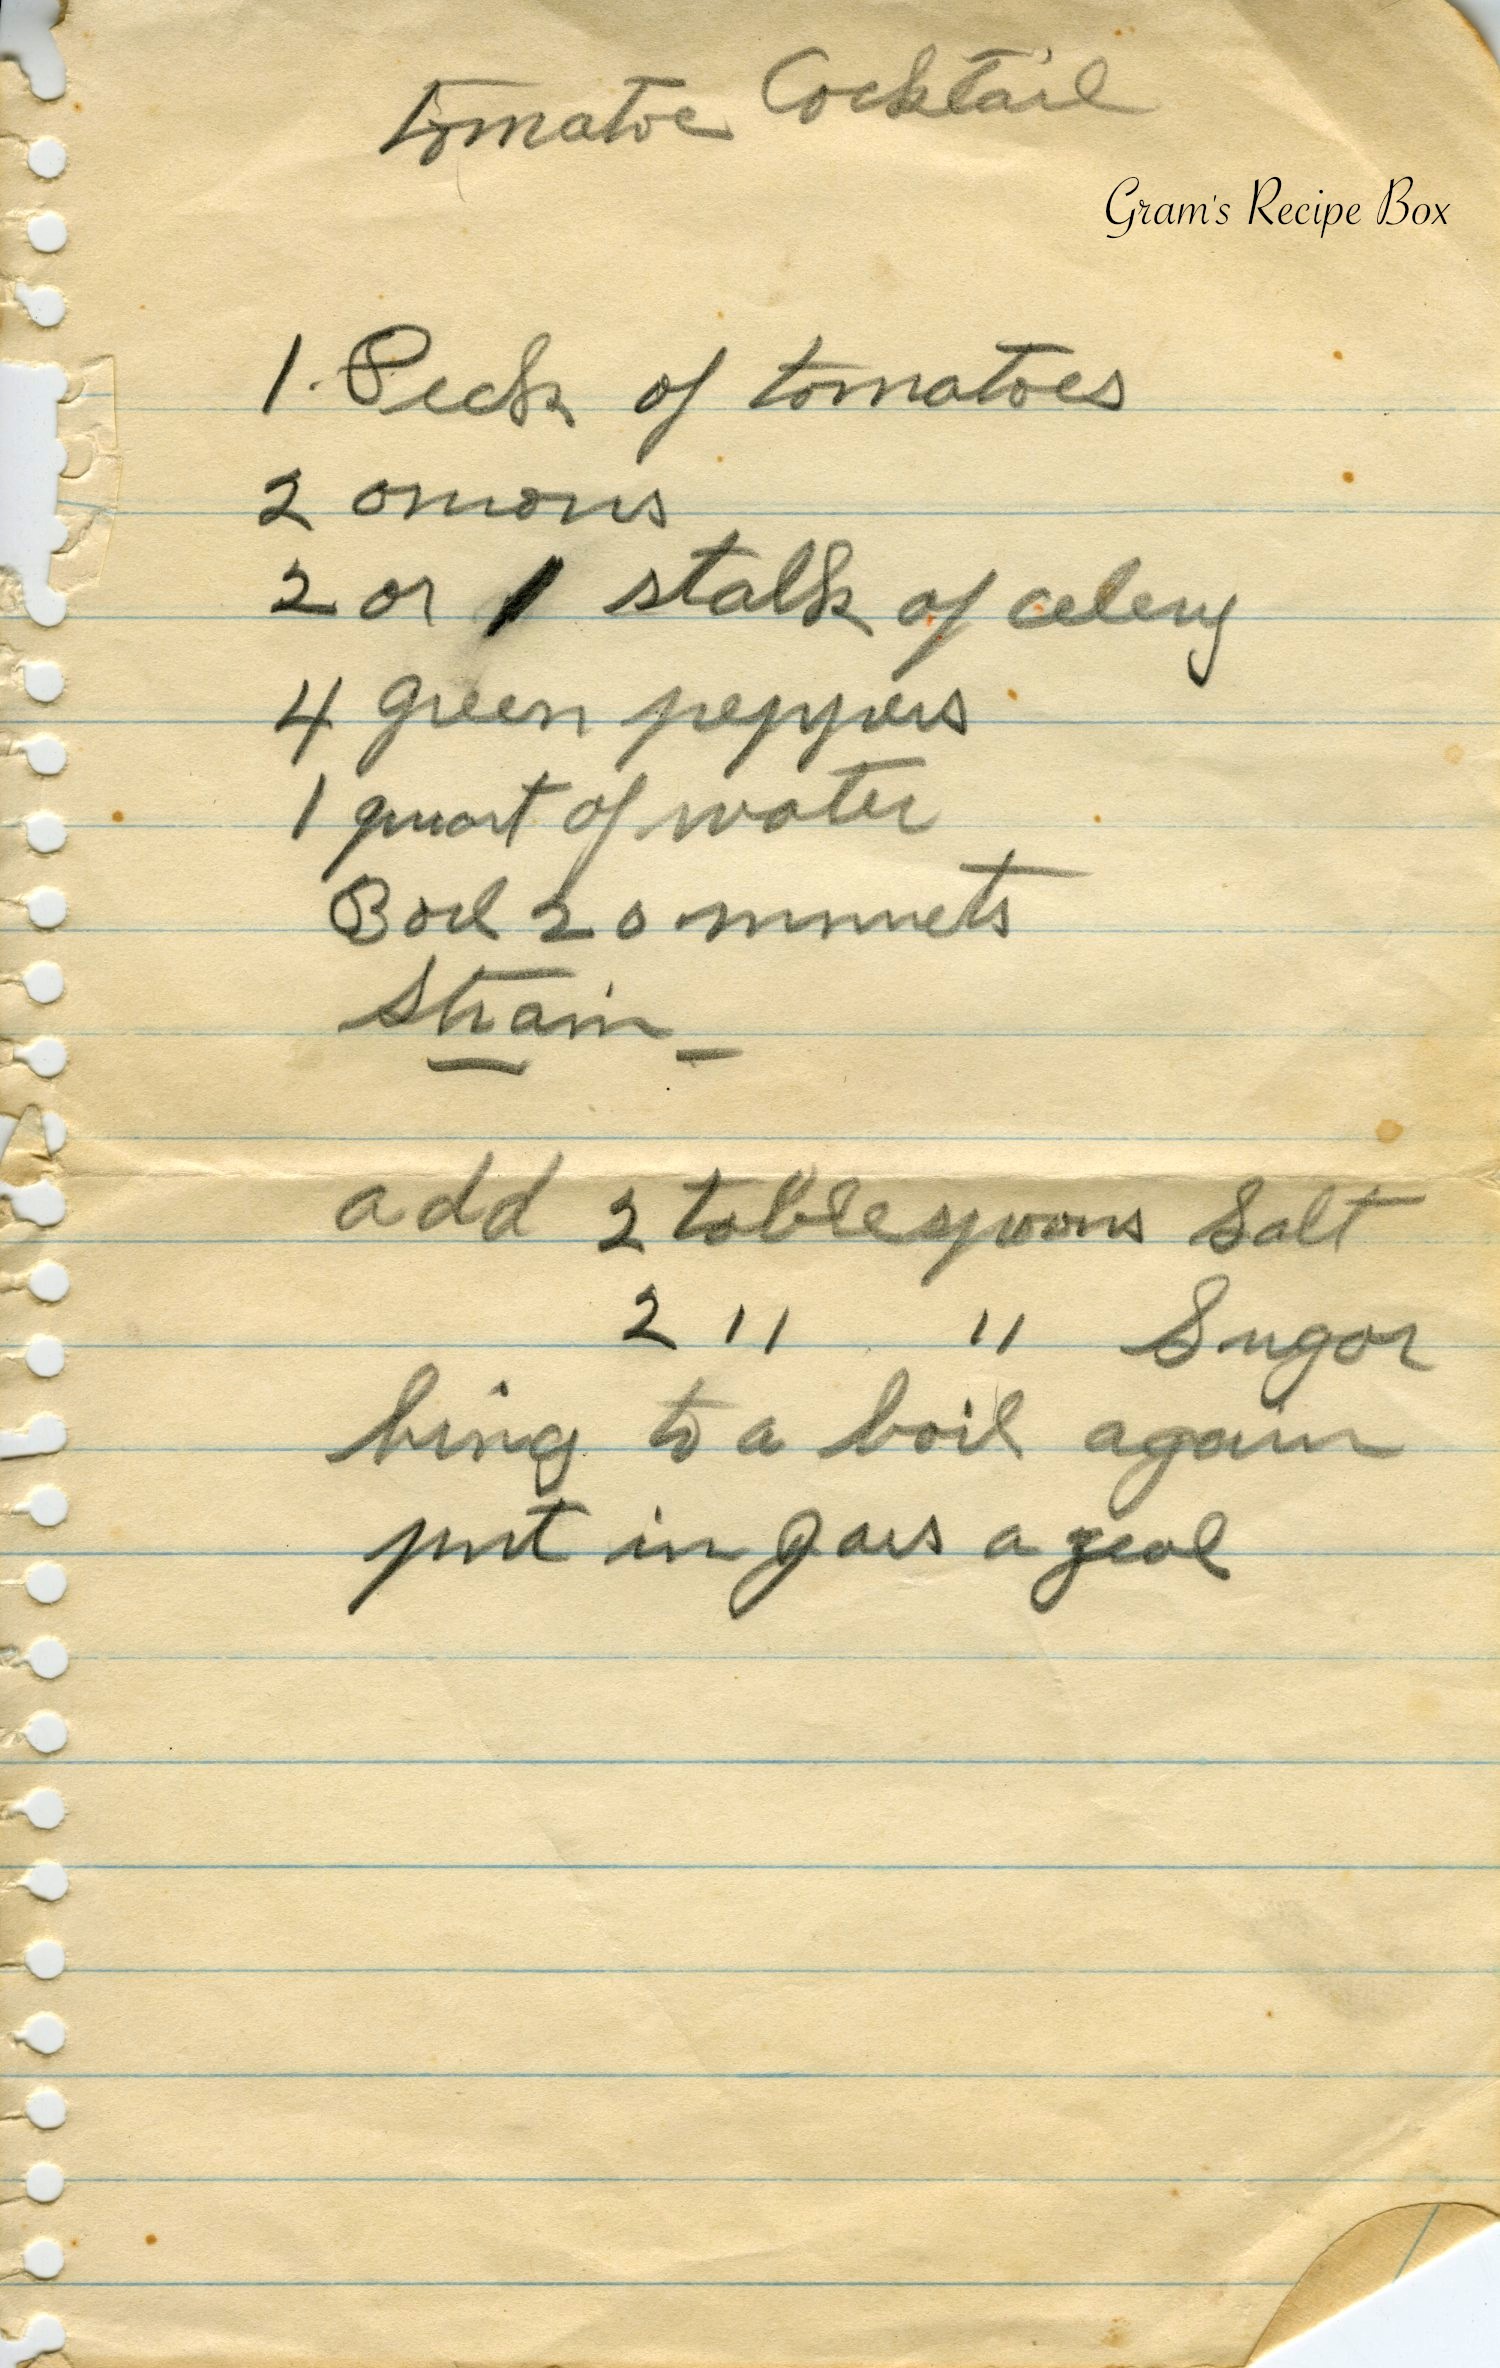 tomatoe Cocktail
Gram's Recipe Box
1 Peck of tomatoes
2 onions
2 or 1 stalk of celery
4 green peppers
1 quart of water
Boil 20 minuets
strain
add 2 tablespoons Salt
2 " " Sugar
bring to a boil again
put in jars a